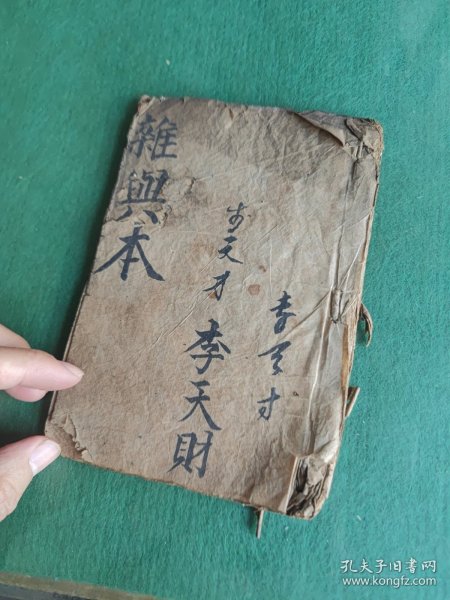 雜與本
李天才
李天財
李天才
孔夫子旧书网
www.kongfz.com